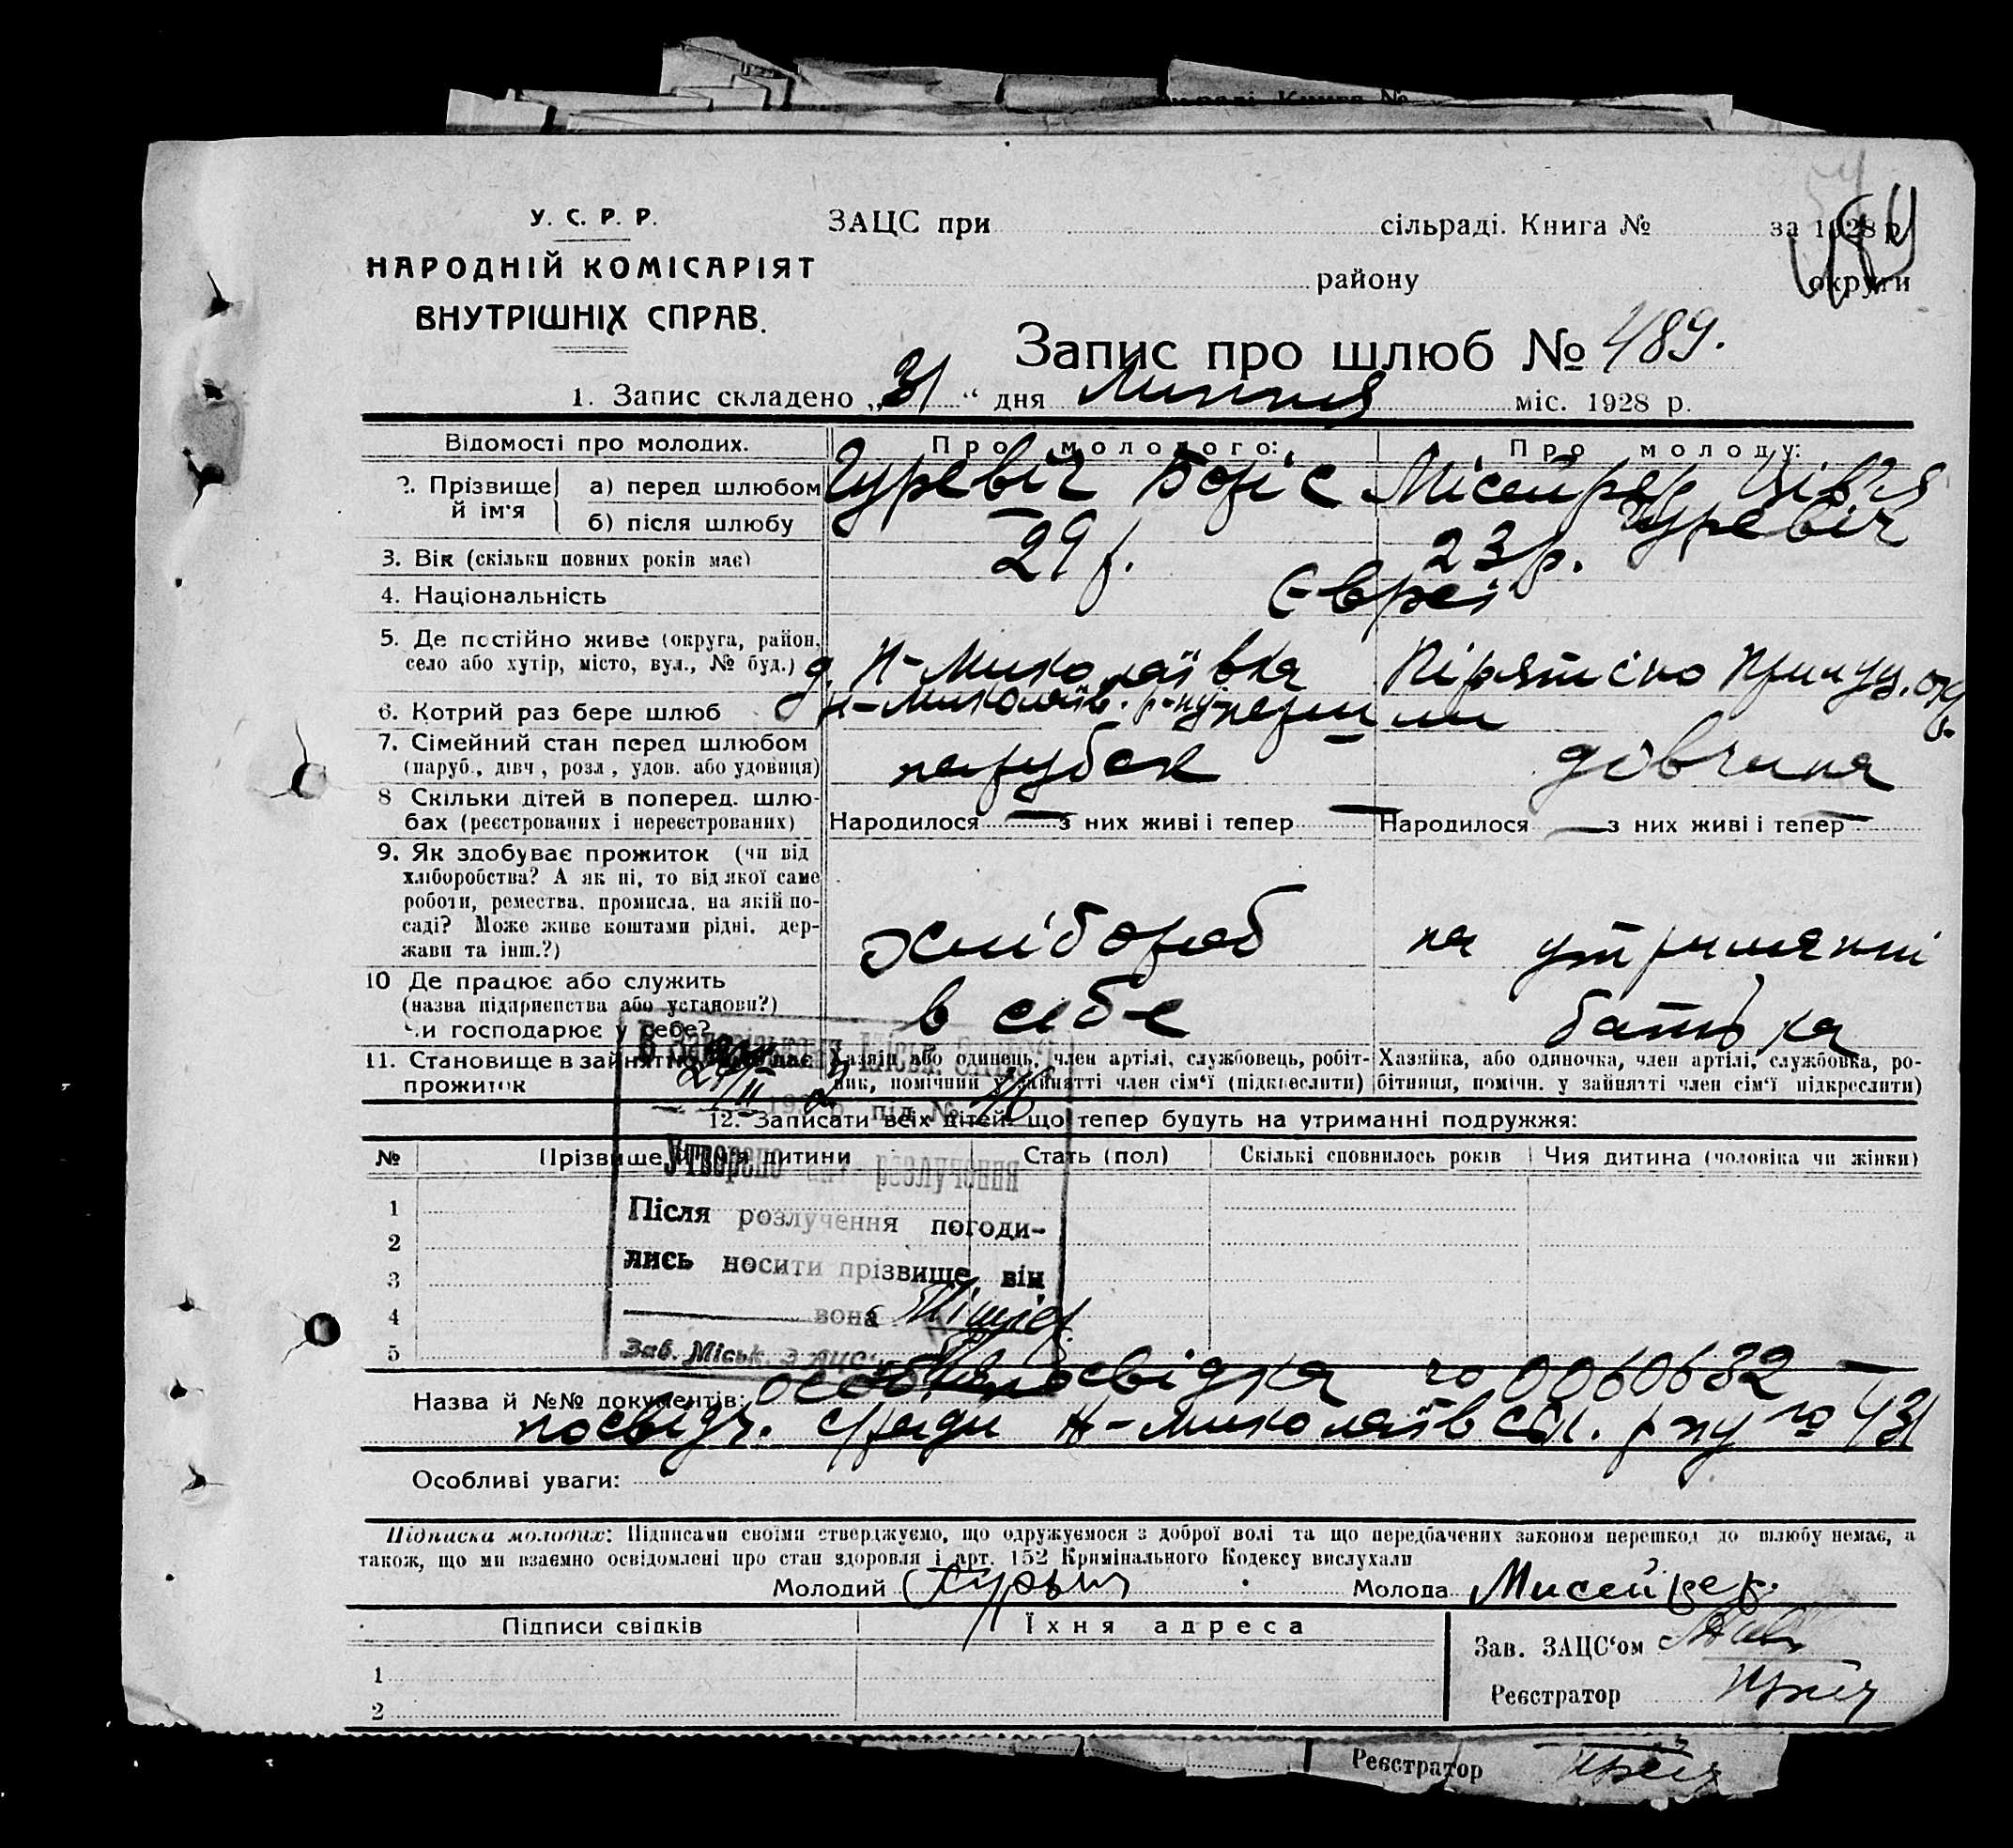 У. С. Р. Р.
НАРОДНІЙ КОМІСАРІЯТ
ВНУТРІШНІХ СПРАВ.
ЗАЦС при сільраді. Книга № за 1928 р
району округи
Запис про шлюб № 489.
1. Запис складено „31“ дня Липня міс. 1928 р.
Відомості про молодих. Про молодого: Про молоду:
2. Прізвище й ім'я а) перед шлюбом Гуревіч Боріс Місейрер Цівья
б) після шлюбу Гуревіч
3. Вік (скільки повних років має) 29 р. 23 р.
4. Національність Євреї
5. Де постійно живе (округа, район, село або хутір, місто, вул., № буд.) Н-Миколаївка
Пірятіно Прилуц. окр.
6. Котрий раз бере шлюб Н-Миколаїв. р-ну
7. Сімейний стан перед шлюбом (паруб., дівч, розл, удов. або удовиця) парубок дівчина
8 Скільки дітей в поперед. шлюбах (реєстрованих і нереєстрованих) Народилося — з них живі і тепер — Народилося — з них живі і тепер —
9. Як здобуває прожиток (чи від
хліборобства? А як ні, то від якої саме
роботи, ремества, промисла, на якій по-
саді? Може живе коштами рідні, дер-
жави та інш.?) хлібороб на утриманні
10 Де працює або служить
(назва підприємства або установи?)
Чи господарює у себе? в себе батька
11. Становище в занятті, що дає прожиток
Хазяїн або одинець, член артілі, службовець, робіт-
ник, помічний у зайнятті член сім'ї (підкреслити)
Хазяйка, або одиночка, член артілі, службовка, ро-
бітниця, помічн. у зайнятті член сім'ї підкреслити)
12. Записати всіх дітей що тепер будуть на утриманні подружжя:
№ Прізвище й ім'я дитини Стать (пол) Скількі сповнилось років Чия дитина (чоловіка чи жінки)
1
2
3
4
5
Утворено акт розлучення
Після розлучення погоди-
лись носити прізвище він
вона
Зав. Міськ. ЗАЦС
Назва й №№ документів: особ. посвідка № 0060632 —
посвідч. с/ради Н-Миколаївськ. р-ну № 431
Особливі уваги:
Підписка молодих: Підписами своїми стверджуємо, що одружуємося з доброї волі та що передбачених законом перешкод до шлюбу немає, а
також, що ми взаємно освідомлені про стан здоровля і арт. 152 Кримінального Кодексу вислухали
Молодий Молода Мисейрер.
Підписи свідків Їхня адреса
Зав. ЗАЦС'ом
1
Реєстратор
2
Реєстратор